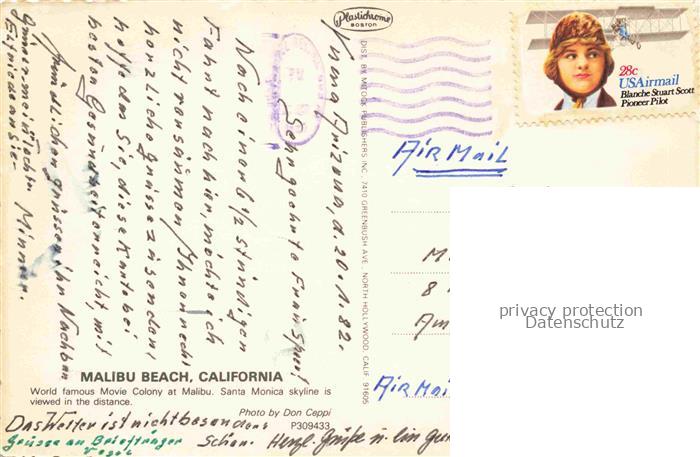 Plastichrome
BOSTON
28c
USAirmail
Blanche Stuart Scott
Pioneer Pilot
Yuma Arizona, d. 20.1.82.
Sehr geehrte Frau
Nach einer 6 1/2 stündigen
Fahrt nach hier, möchte ich
nicht versäumen Ihnen recht
herzliche Grüsse zu senden,
hoffe das Sie, diese Karte bei
bester Gesundheit erreicht, mit
freundlichen grüssen ihr Nachbar
DIST. BY MITOCK PUBLISHERS INC., 7410 GREENBUSH AVE., NORTH HOLLYWOOD, CALIF. 91605
AIR MAIL
M
8
Am
AIR Mai
privacy protection
Datenschutz
MALIBU BEACH, CALIFORNIA
World famous Movie Colony at Malibu. Santa Monica skyline is
viewed in the distance.
Photo by Don Ceppi
P309433
Das Wetter ist nicht besonders
Schön. Herzl. Grüße u.
Grüsse an Briefträger